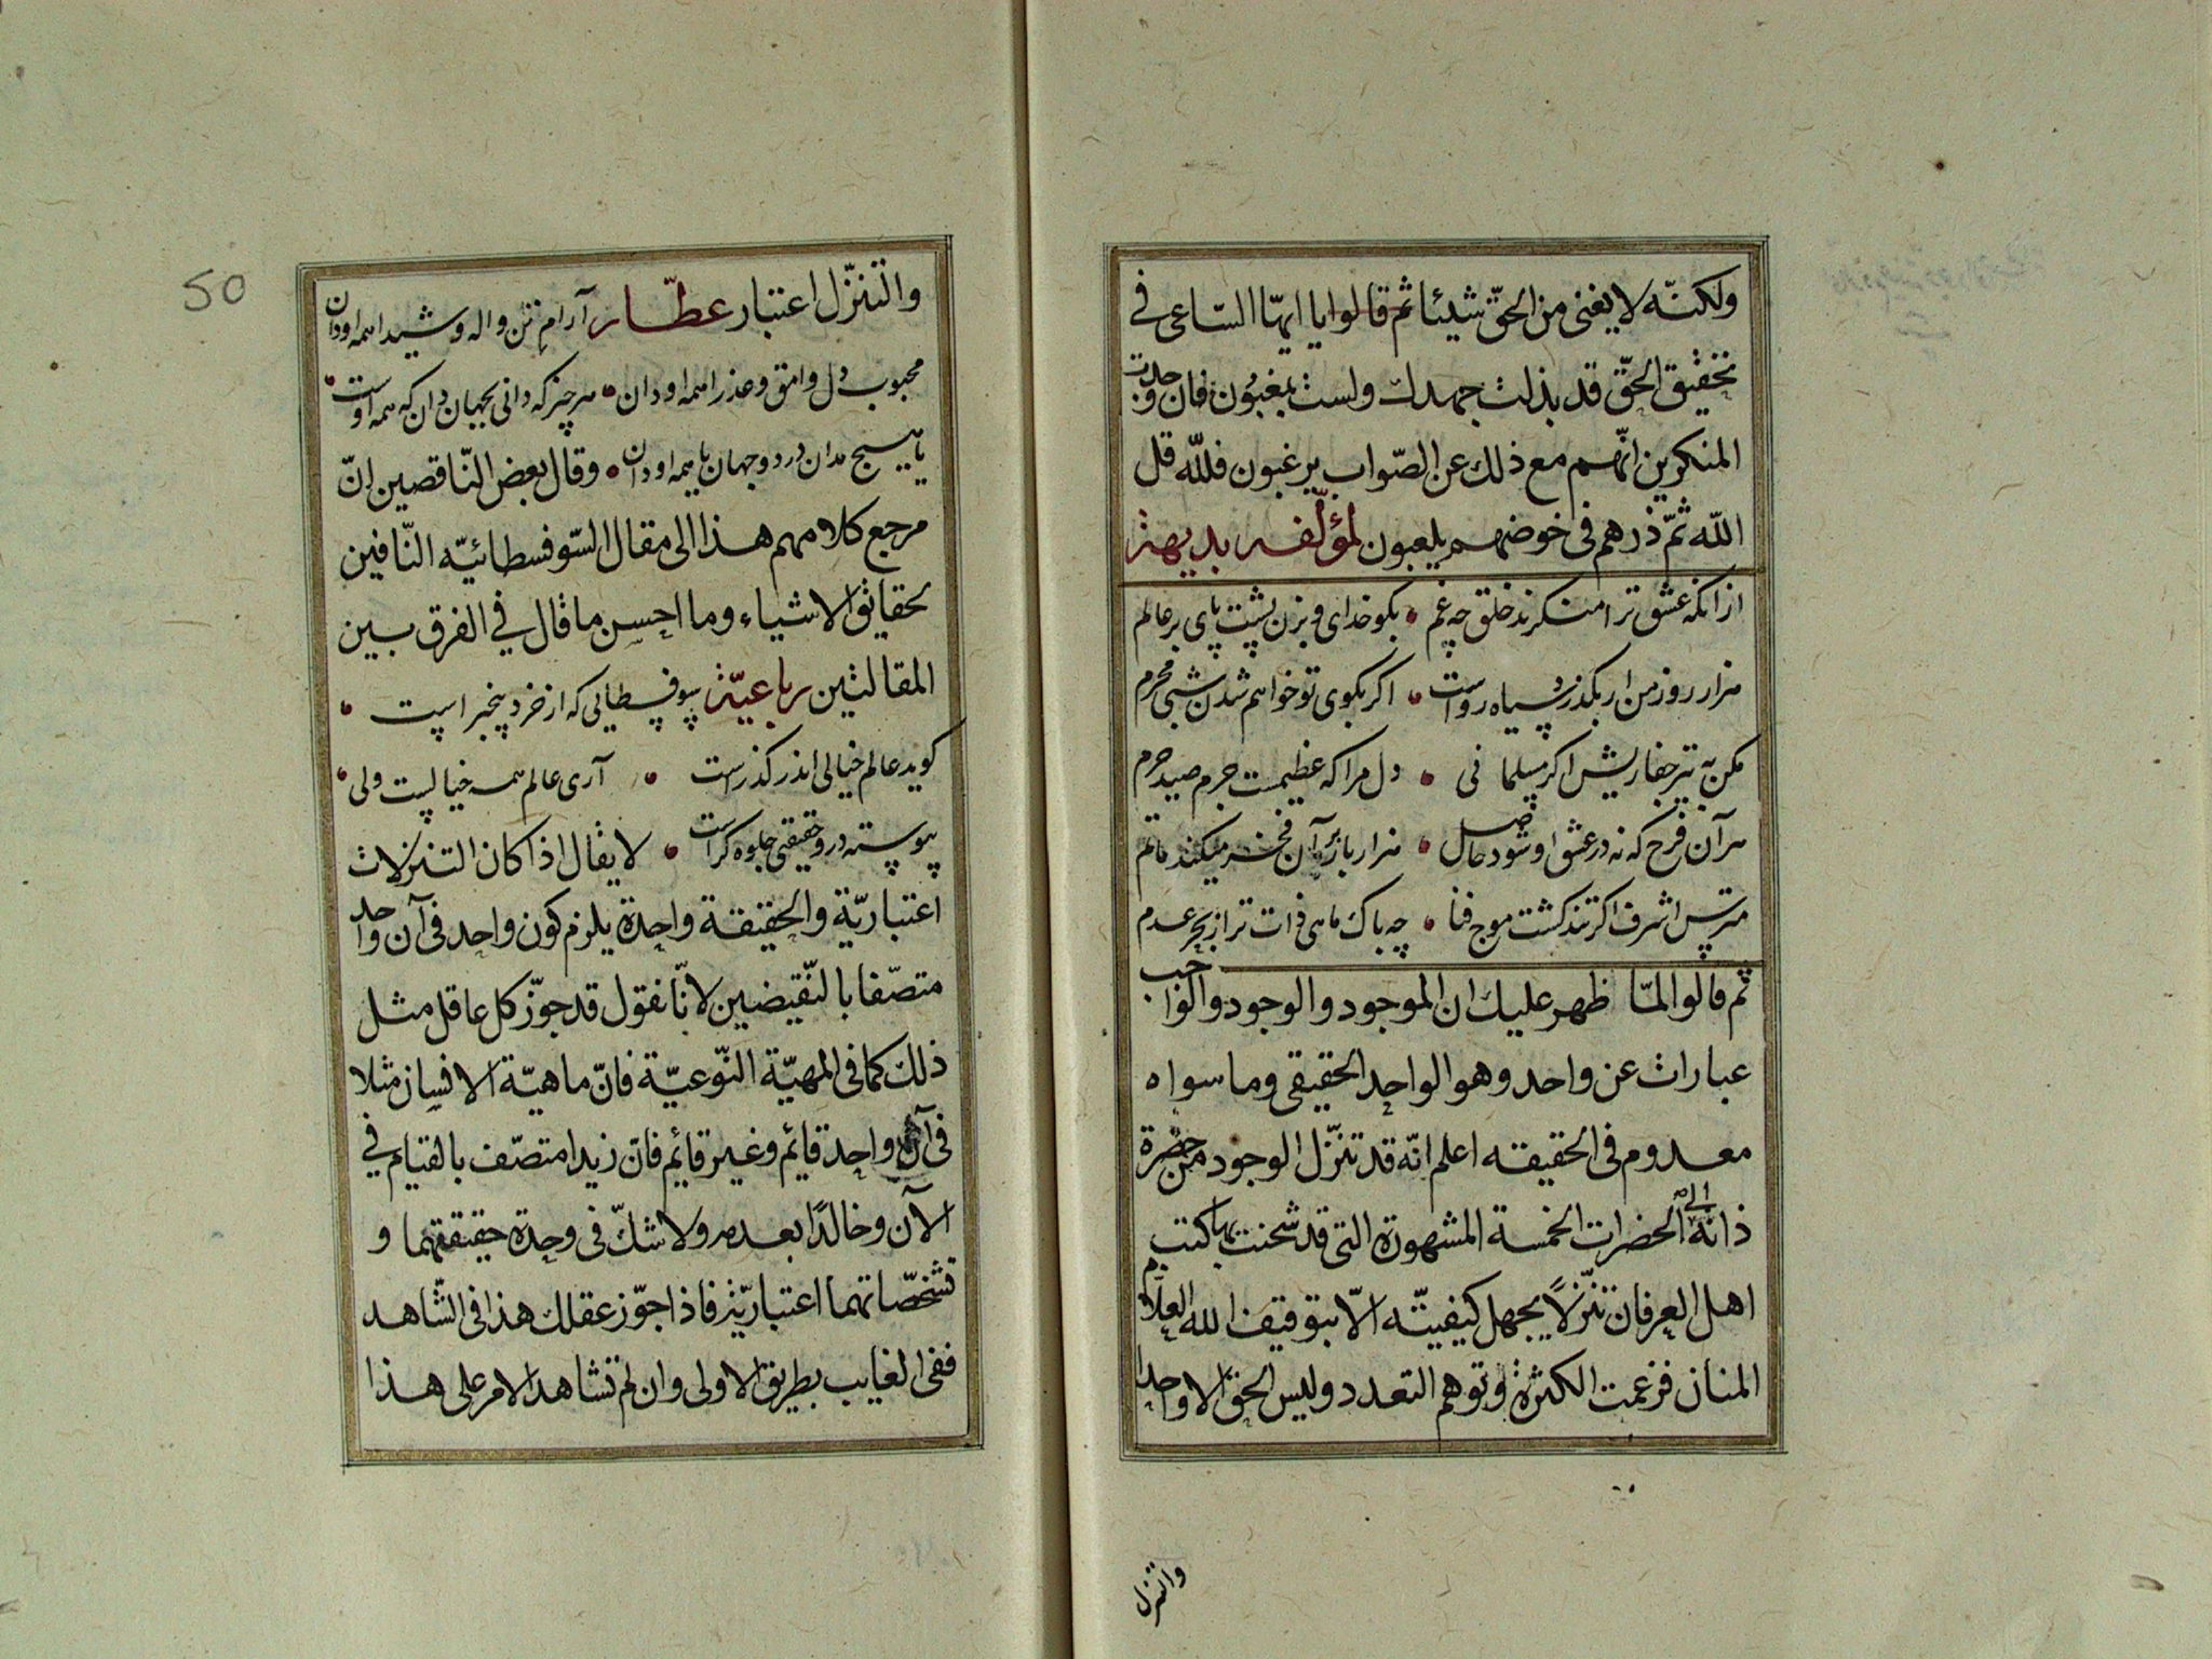 ولكنّه لا يغنى من الحقّ شيئا ثم قالوا يا ايهّا السّاعى فى
تحقيق الحقّ قد بذلت جهدك ولست بمغبون فان وجدت
المنكرين انّهم مع ذلك عن الصّواب يرغبون فللّه قل
اللّه ثمّ ذرهم فى خوضهم يلعبون لمؤلّفه بديهة
از انكه عشق ترا منكرند خلق چه غم • بكو خداى و بزن پشت پاى بر عالم
هزار روز من ار بكذرد سياه رواست • اكر بكوى تو خواهم شدن شبى محرم
مكن به تير جفا ريش اكر مسلمانى • دل مرا كه عظيمست جرم صيد حرم
هر آن فرح كه نه در عشق او شود حاصل • هزار بار بر آن فخر ميكند ماتم
مترس اشرف اكر تند كشت موج فنا • چه باك ماهى ذات ترا ز بحر عدم
ثم قالوا لمّا ظهر عليك ان الموجود والوجود والواجب
عبارات عن واحد وهو الواحد الحقيقى وما سواه
معدوم فى الحقيقه اعلم انّه قد تنزّل الوجود من حضرة
ذاته الى الحضرات الخمسة المشهورة التى قد شحنت بها كتب
اهل العرفان تنزّلاً يجهل كيفيّته الاّ بتوقيف الله العلاّم
المنان فزعمت الكثرة وتوهم التعدد وليس الحق الا واحدا
والتنزل
50
والتنزّل اعتبار عطّار آرام تن و اله و شيدا همه او دان
محبوب دل وامق و عذرا همه او دان • هر چيز كه دانى بجهان دان كه همه اوست •
يا هيچ مدان در دو جهان يا همه او دان • وقال بعض النّاقصين انّ
مرجع كلامهم هذا الى مقال السّوفسطائيّه النّافين
لحقايق الاشياء وما احسن ما قال في الفرق بين
المقالتين رباعيّة سوفسطايى كه از خرد بيخبر است •
كويد عالم خيالى اندر كذر است • آرى عالم همه خياليست ولى •
پيوسته درو حقيقتى جلوه كر است • لا يقال اذا كان التنزلات
اعتباريّة والحقيقة واحدة يلزم كون واحد فى آن واحد
متصّفا بالنّقيضين لانّا نقول قد جوّز كل عاقل مثل
ذلك كما فى المهيّة النّوعيّة فانّ ماهيّة الانسان مثلا
فى آن واحد قائم وغير قائم فان زيدا متصّف بالقيام في
الآن وخالدًا بعدمه ولا شكّ فى وحدة حقيقتهما و
تشخّصاتهما اعتباريّة فاذا جوّز عقلك هذا فى الشّاهد
ففى الغايب بطريق الاولى وان لم تشاهد الامر على هذا